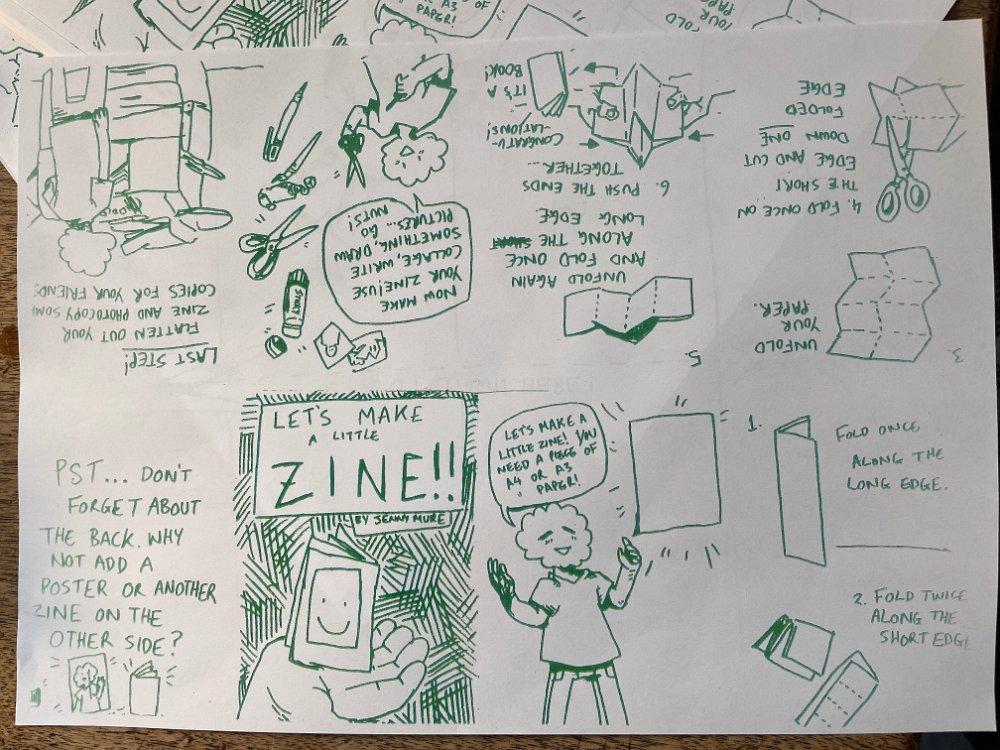 A3
PAPER!
LET'S MAKE
A LITTLE
ZINE!!
BY JENNY MURE
LET'S MAKE A
LITTLE ZINE! YOU
NEED A PIECE OF
A4 OR A3
PAPER!
1.
FOLD ONCE
ALONG THE
LONG EDGE.
2. FOLD TWICE
ALONG THE
SHORT EDGE
3.
UNFOLD
YOUR
PAPER.
4. FOLD ONCE ON
THE SHORT
EDGE AND CUT
DOWN ONE
FOLDED
EDGE
5.
UNFOLD AGAIN
AND FOLD ONCE
ALONG THE
LONG EDGE
6. PUSH THE ENDS
TOGETHER...
CONGRATU-
LATIONS!
IT'S A
BOOK!
NOW MAKE
YOUR ZINE! USE
COLLAGE, WRITE
SOMETHING, DRAW
PICTURES... GO
NUTS!
STICKY!
LAST STEP!
FLATTEN OUT YOUR
ZINE AND PHOTOCOPY SOME
COPIES FOR YOUR FRIENDS
PST... DON'T
FORGET ABOUT
THE BACK. WHY
NOT ADD A
POSTER OR ANOTHER
ZINE ON THE
OTHER SIDE?